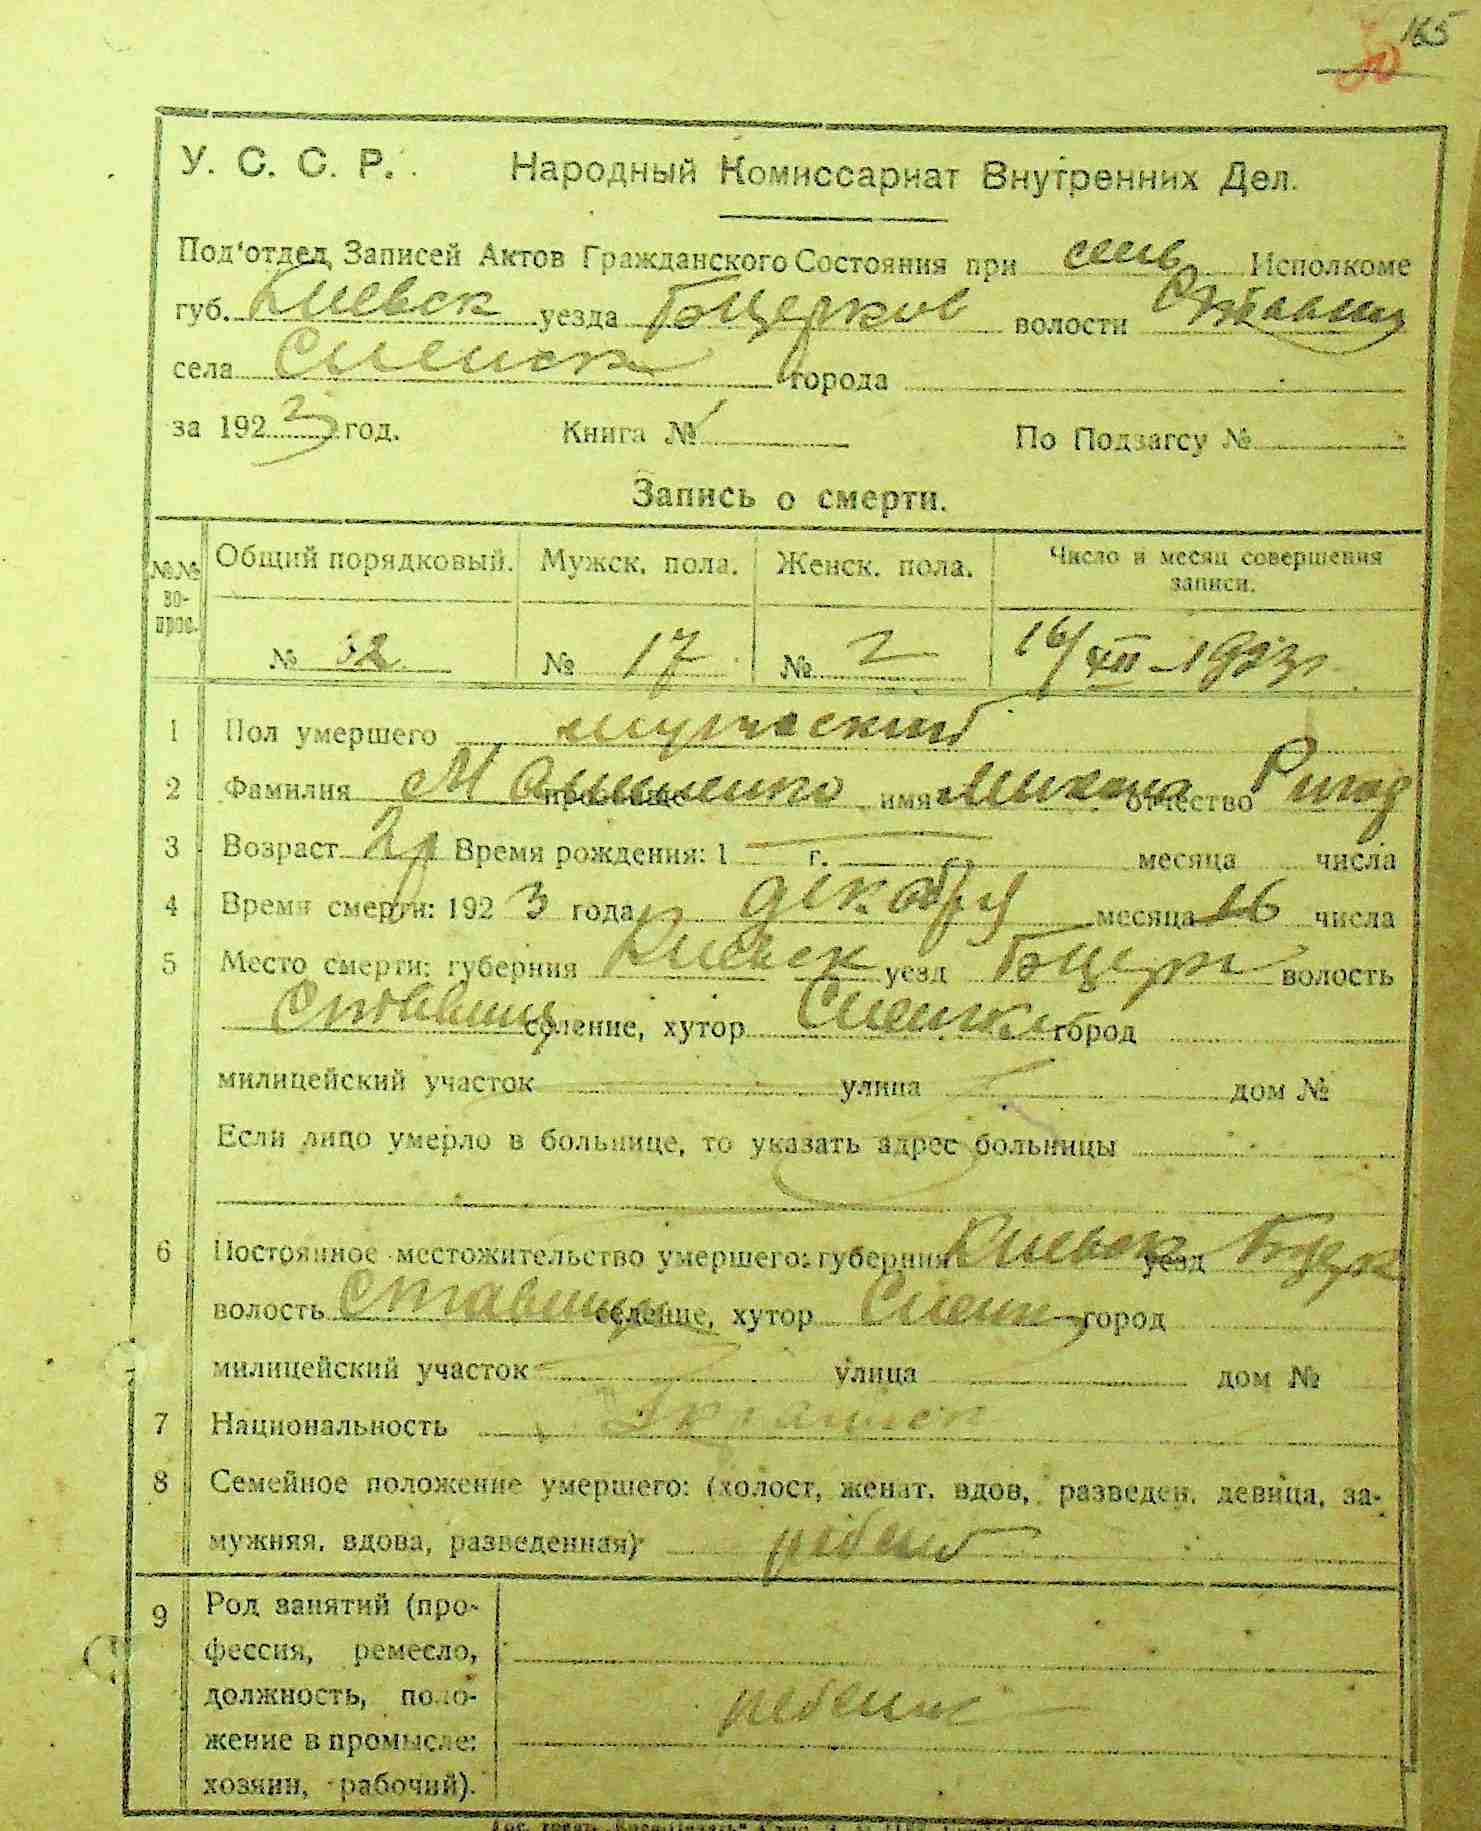 165
50
У. С. С. Р. Народный Комиссариат Внутренних Дел.
Под'отдел Записей Актов Гражданского Состояния при сель Исполкоме
губ. Киевск уезда Бѣцерков волости Ставищ
села
города
за 1923 год. Книга № По Подзагсу №
Запись о смерти.
№№ во- прос. Общий порядковый. Мужск. пола. Женск. пола. Число и месяц совершения записи.
№ 32 № 17 № 2 16/XII-1923г.
1 Пол умершего мужеский
2 Фамилия прозвище имя Михаил отчество
3 Возраст 2 г Время рождения: 1 г. месяца числа
4 Время смерти: 1923 года декабря месяца 16 числа
5 Место смерти: губерния Киевск уезд Бцерк волость
Ставищ селение, хутор город
милицейский участок улица дом №
Если лицо умерло в больнице, то указать адрес больницы
6 Постоянное местожительство умершего: губерния Киевск уезд Бцерк
волость Ставищ селение, хутор город
милицейский участок улица дом №
7 Национальность Украинск
8 Семейное положение умершего: (холост, женат, вдов, разведен, девица, за-
мужняя, вдова, разведенная) ребенок
9 Род занятий (про-
фессия, ремесло,
должность, поло- ребенок
жение в промысле:
хозяин, рабочий).